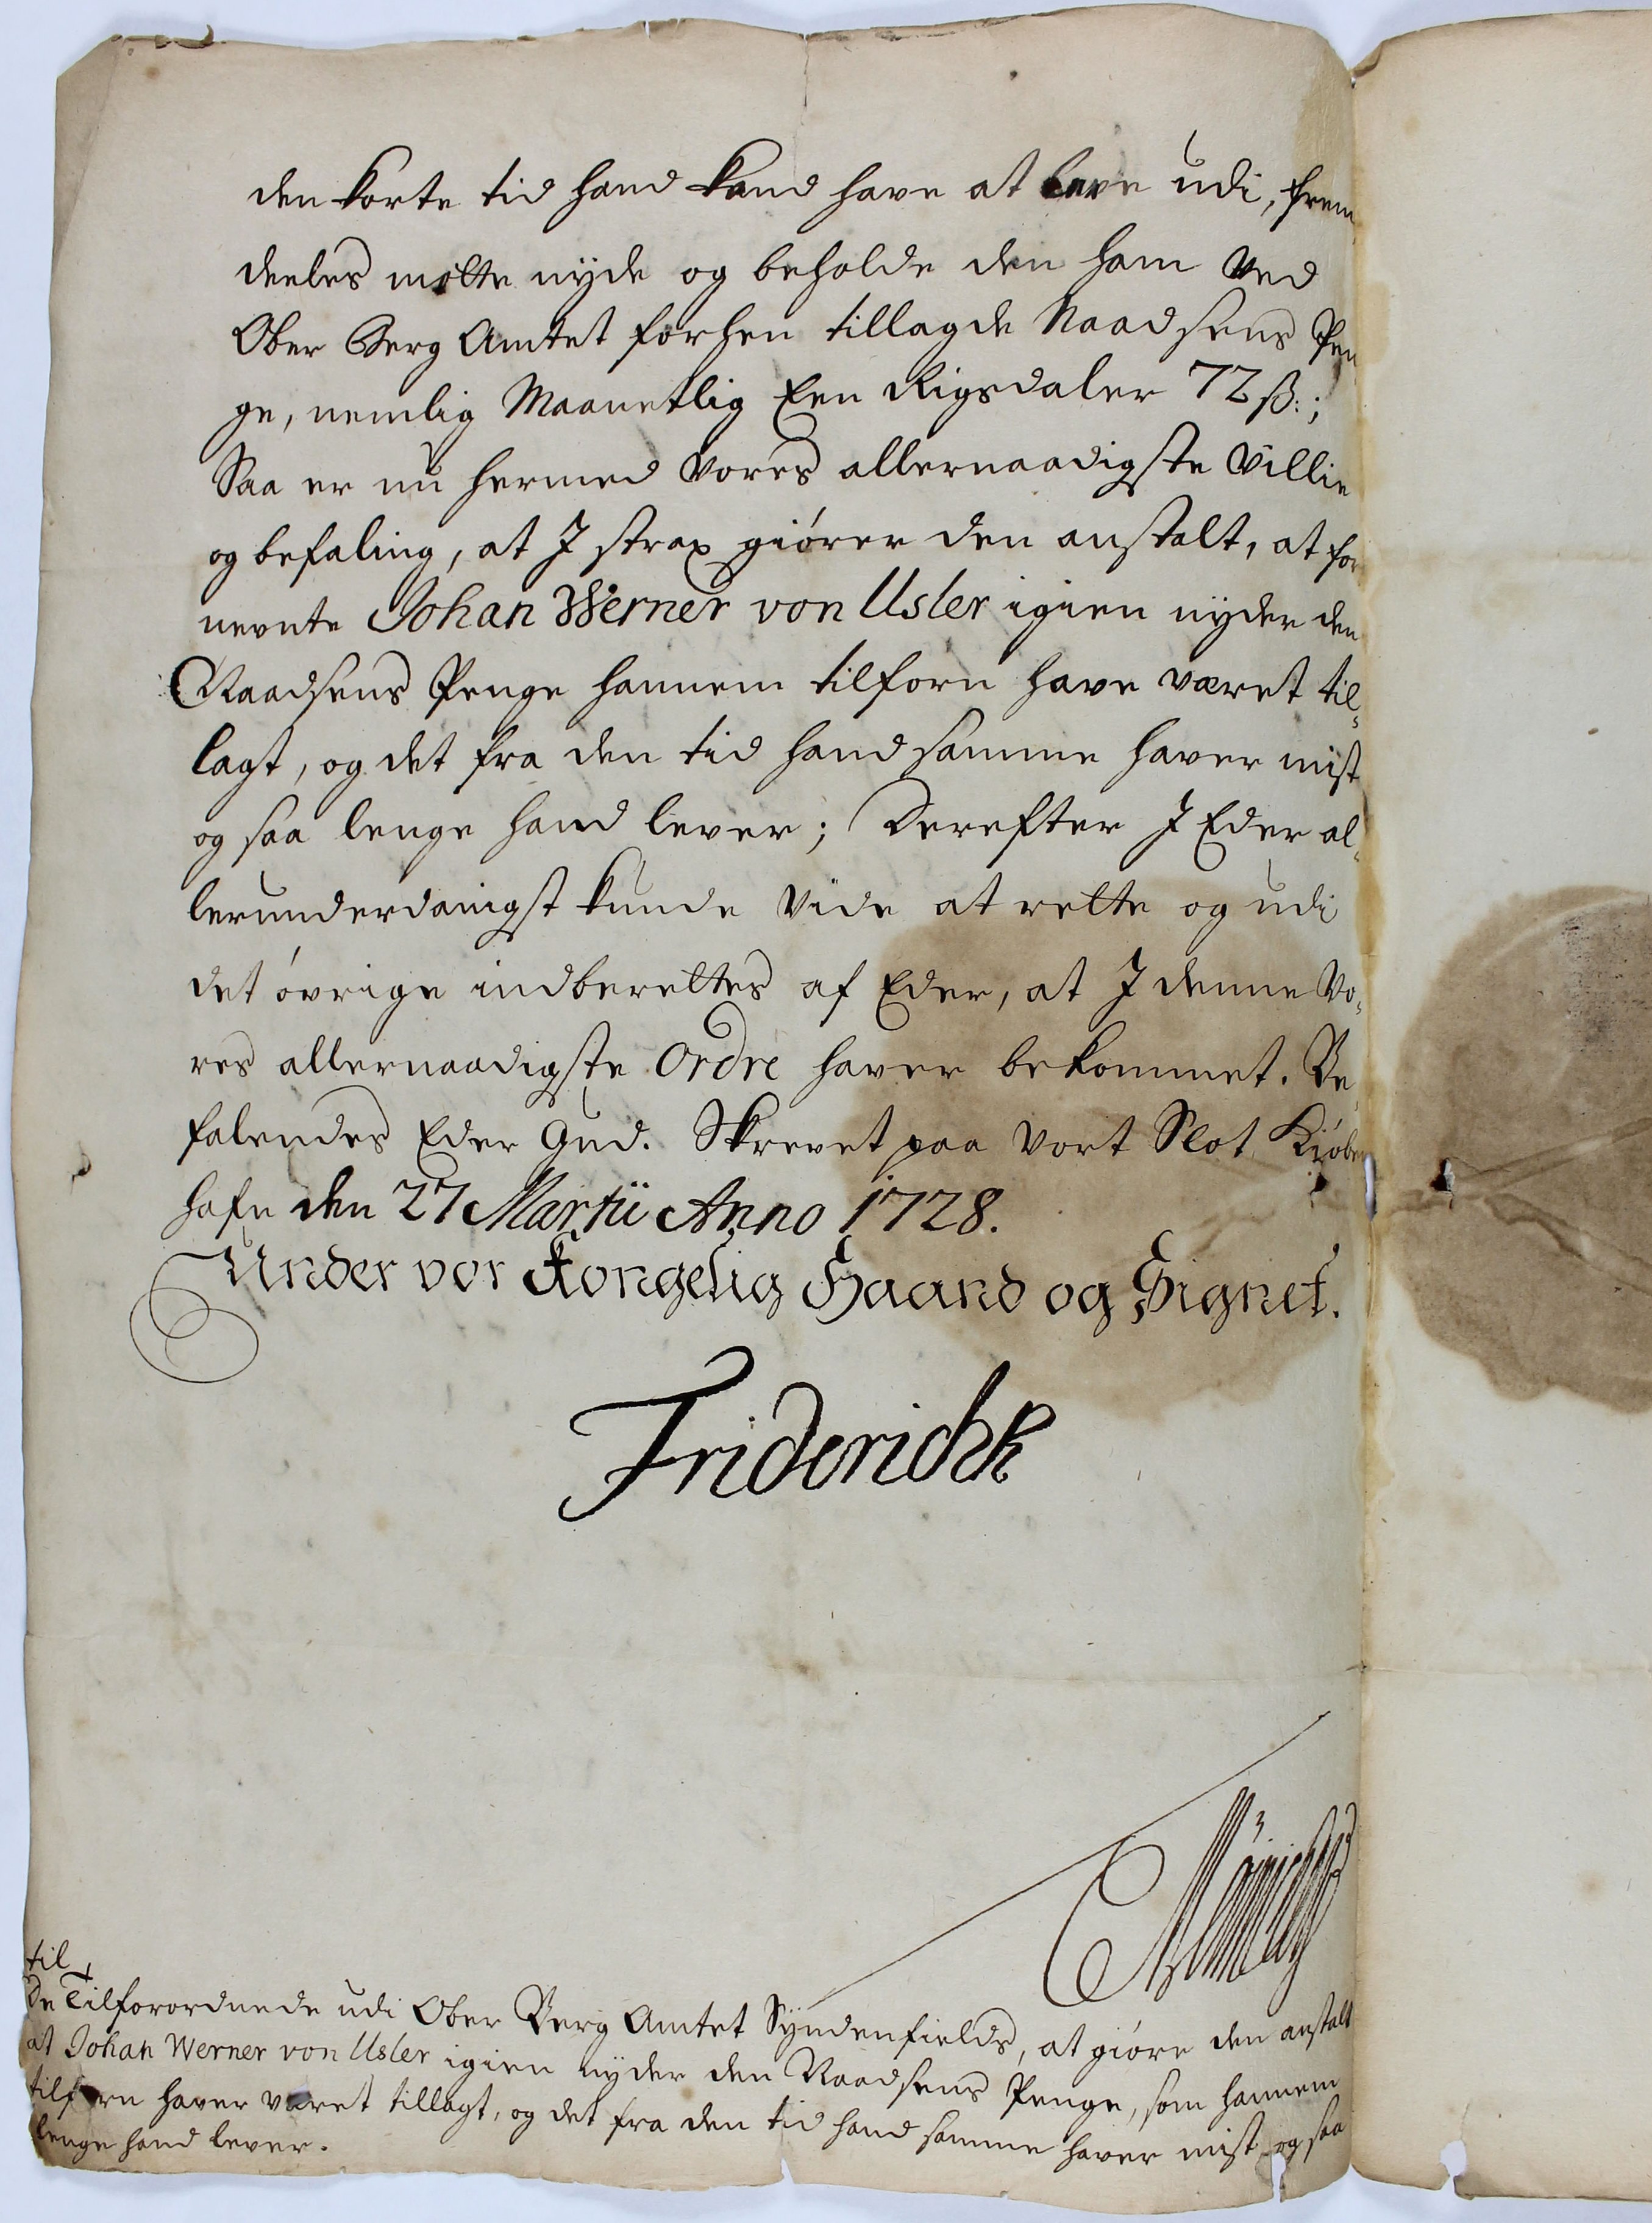 den korte tid hand kand have at leve udi, frem
deeles motte nyde og beholde den ham ved
Ober Berg Amtet forhen tillagde Naadsens Pen
ge, nemlig Maanetlig Een Rigsdaler 72 ß:;
Saa er nu hermed Vores allernaadigste Villie
og befaling, at I strax giører den anstalt, at for
nevnte Johan Werner von Usler igien nyder den
Naadsens Penge hannem tilforn have været til-
lagt, og det fra den tid hand samme haver mist
og saa lenge hand lever; Derefter I Eder al-
lerunderdanigst kunde vide at rette og udi
det øvrige indberettes af Eder, at I denne Vo-
res allernaadigste Ordre haver bekommet. Be
falendes Eder Gud. Skrevet paa Vort Slot Kiøben
hafn den 27 Martii Anno 1728.
Under vor Kongelig Haand og Signet.
Friderich R
til
De Tilforordnede udi Ober Berg Amtet Syndenfields, at giøre den anstalt
at Johan Werner von Usler igien nyder den Naadsens Penge, som hannem
tilforn haver været tillagt, og det fra den tid hand samme haver mist og saa
lenge hand lever.